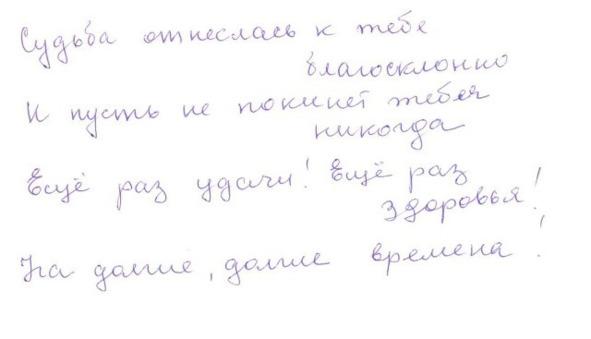 Судьба отнеслась к тебе
благосклонно
И пусть не покинет тебя
никогда
Ещё раз удачи! Ещё раз
здоровья!
На долгие, долгие времена!